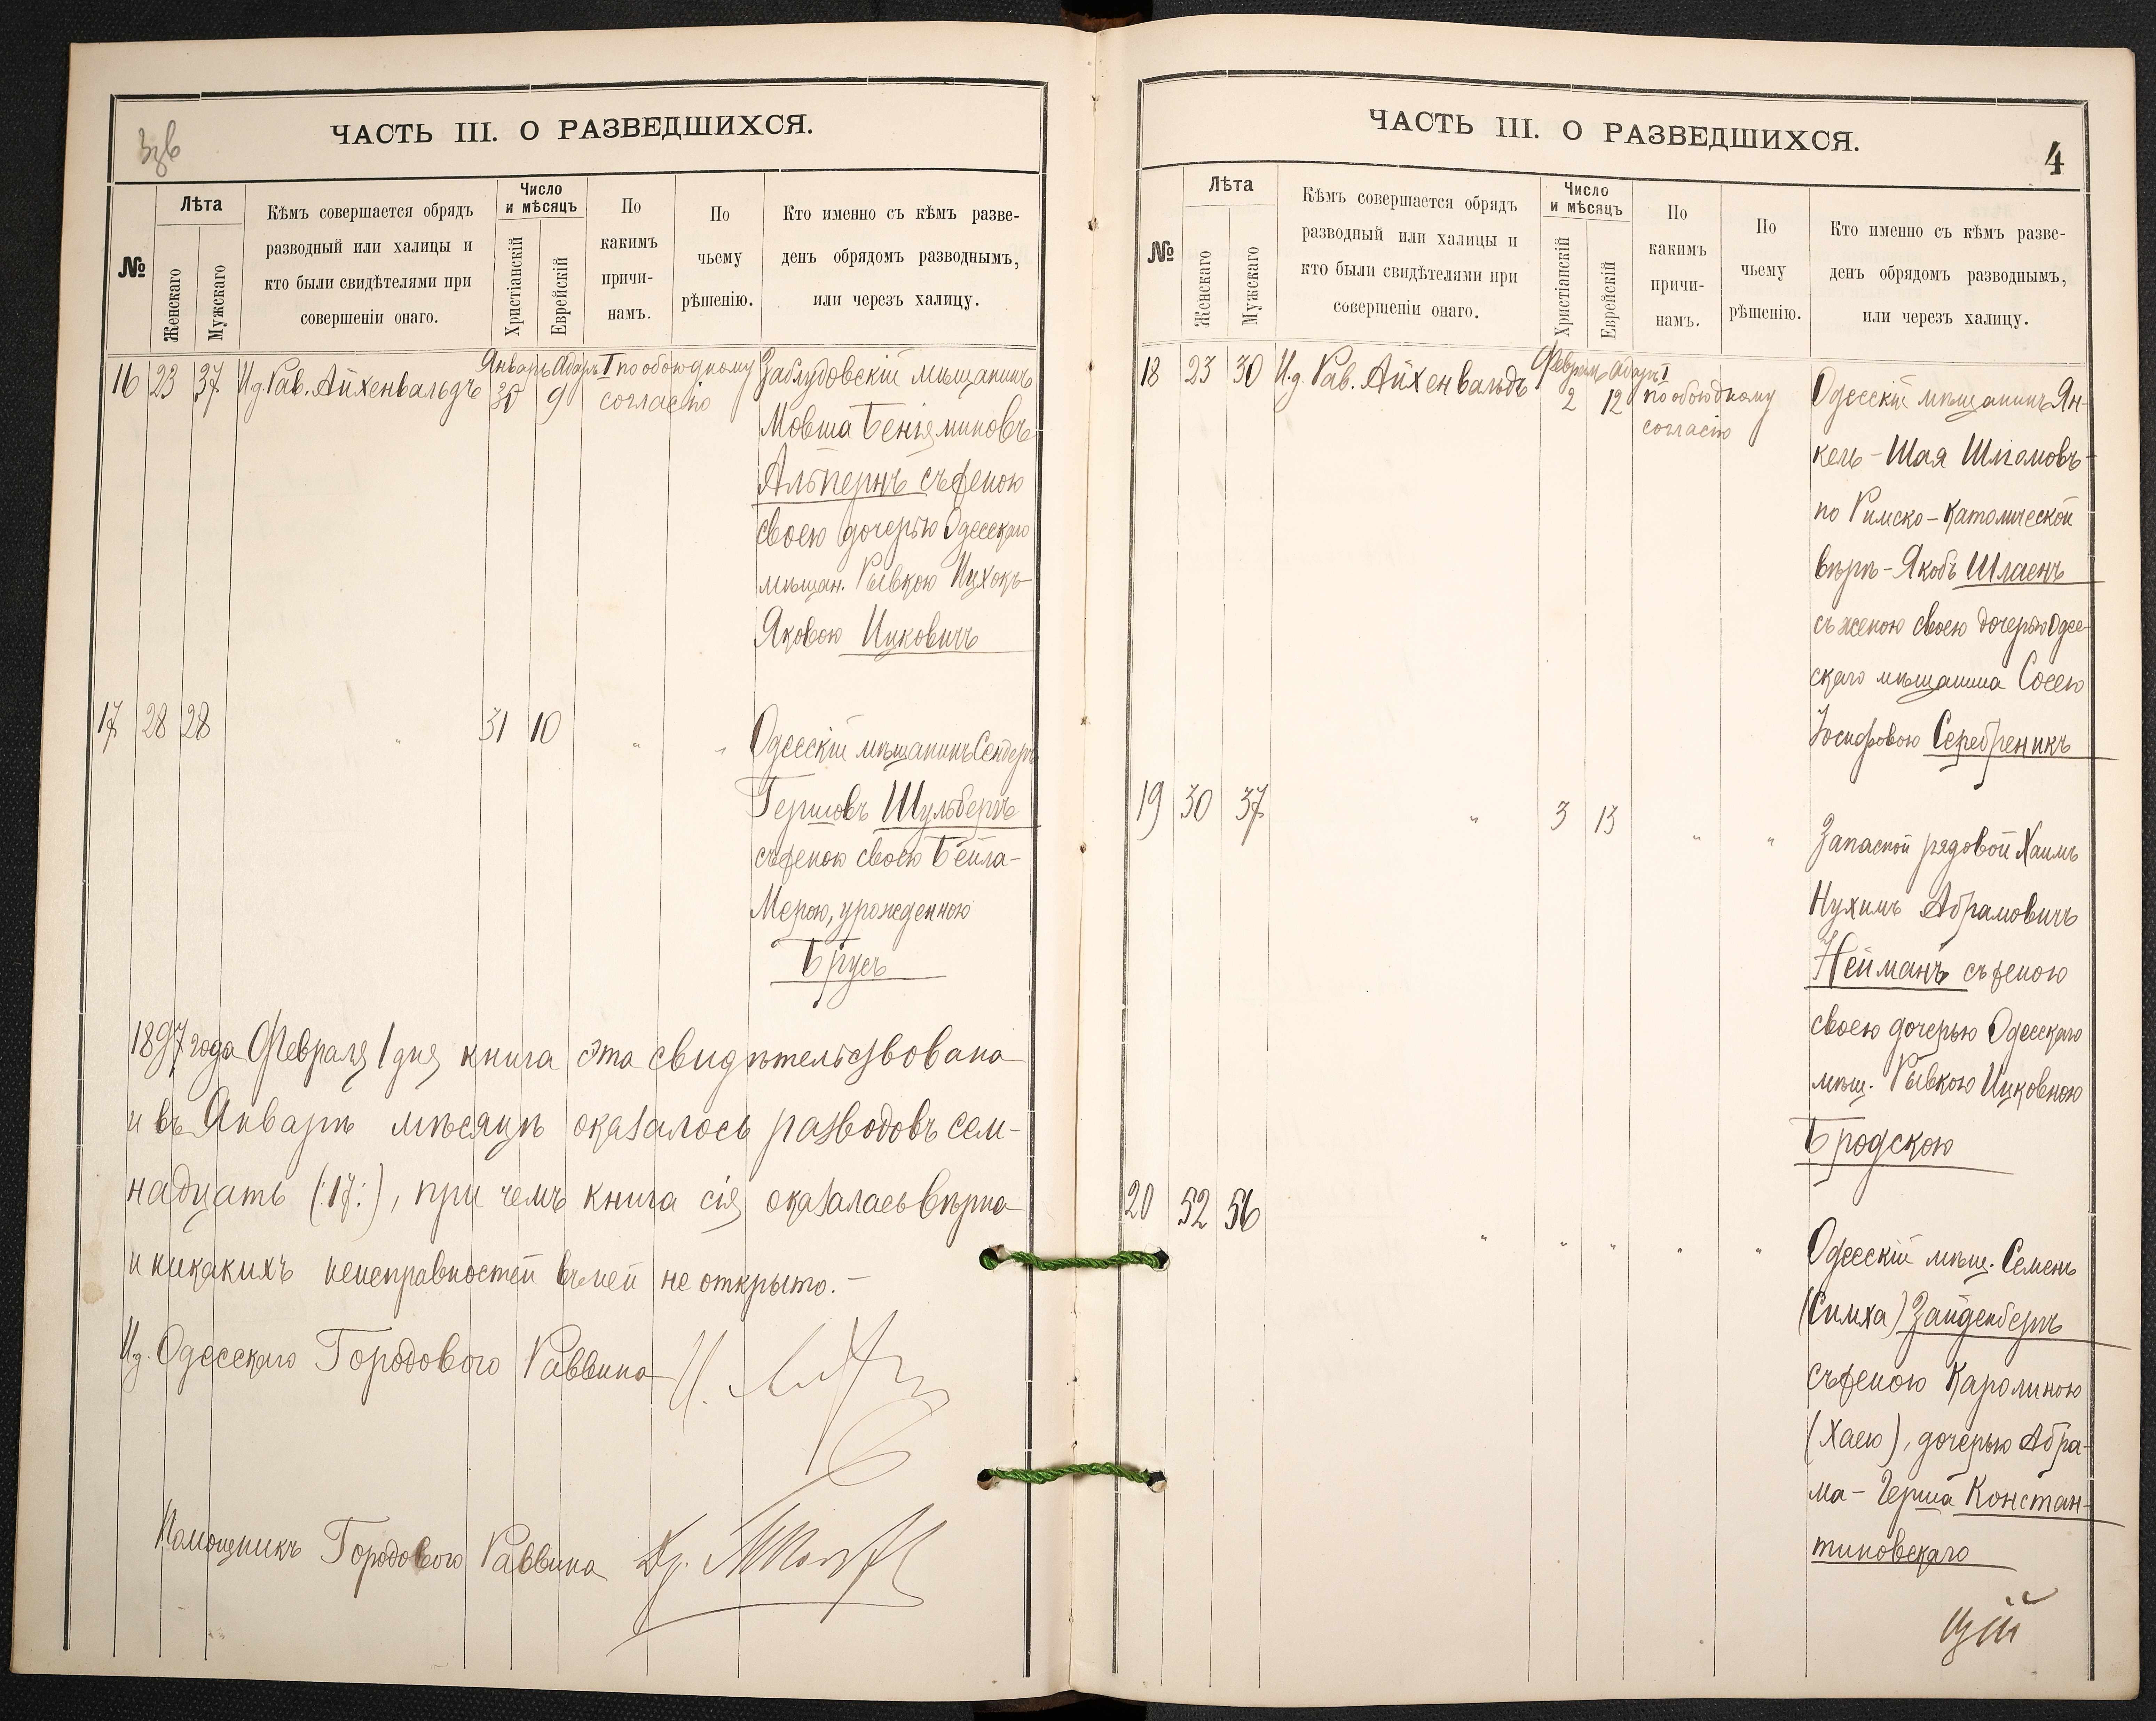 ЧАСТЬ III. О РАЗВЕДШИХСЯ.
№
Лѣта
Женскаго
Мужскаго
Кѣмъ совершается обрядъ
разводный или халицы и
кто были свидѣтелями при
совершеніи онаго.
Число
и мѣсяцъ
Христіанскій
Еврейскій
По
какимъ
причи-
намъ.
По
чьему
рѣшенію.
Кто именно съ кѣмъ разве-
денъ обрядомъ разводнымъ,
или черезъ халицу.
16 23 37 И.д. Рав. Айхенвальдъ
Январь Адаръ I
30 9
по обоюдному
согласію
Заблудовскій мѣщанинъ
Мовша Беніяминовъ
Альпернъ съ женою
своею дочерью Одесскаго
мѣщан. Рывкою Ицхокъ-
Яковою Ицковичъ
17 28 28 " 31 10 " "
Одесскій мѣщанинъ Сендеръ
Гершовъ Шульбергъ
съ женою своею Бейла-
Мерою, урожденною
Брусъ
1897 года Февраля 1 дня книга эта свидѣтельствована
и въ Январѣ мѣсяцѣ оказалось разводовъ сем-
надцать (:17:), при чемъ книга сія оказалась вѣрна
и никакихъ неисправностей въ ней не открыто.-
И.д. Одесскаго Городового Раввина
Помощникъ Городового Раввина Др.
ЧАСТЬ III. О РАЗВЕДШИХСЯ.
4
№
Лѣта
Женскаго
Мужскаго
Кѣмъ совершается обрядъ
разводный или халицы и
кто были свидѣтелями при
совершеніи онаго.
Число
и мѣсяцъ
Христіанскій
Еврейскій
По
какимъ
причи-
намъ.
По
чьему
рѣшенію.
Кто именно съ кѣмъ разве-
денъ обрядомъ разводнымъ,
или черезъ халицу.
18 23 30 И.д. Рав. Айхенвальдъ
Февраль Адаръ I
2 12
по обоюдному
согласію
Одесскій мѣщанинъ Ян-
кель-Шая Шлемовъ-
по Римско-Католической
вѣрѣ-Якобъ Шлаенъ
съ женою своею дочерью Одес-
скаго мѣщанина Сосею
Іосифовою Серебреникъ
19 30 37 " 3 13 " "
Запасной рядовой Хаимъ
Нухимъ Абрамовичъ
Нейманъ съ женою
своею дочерью Одесскаго
мѣщ. Рывкою Ицковною
Бродскою
20 52 56 " " " " "
Одесскій мѣщ. Семенъ
(Симха) Зайденбергъ
съ женою Каролиною
(Хаею), дочерью Абра-
ма-Герша Констан-
тиновскаго